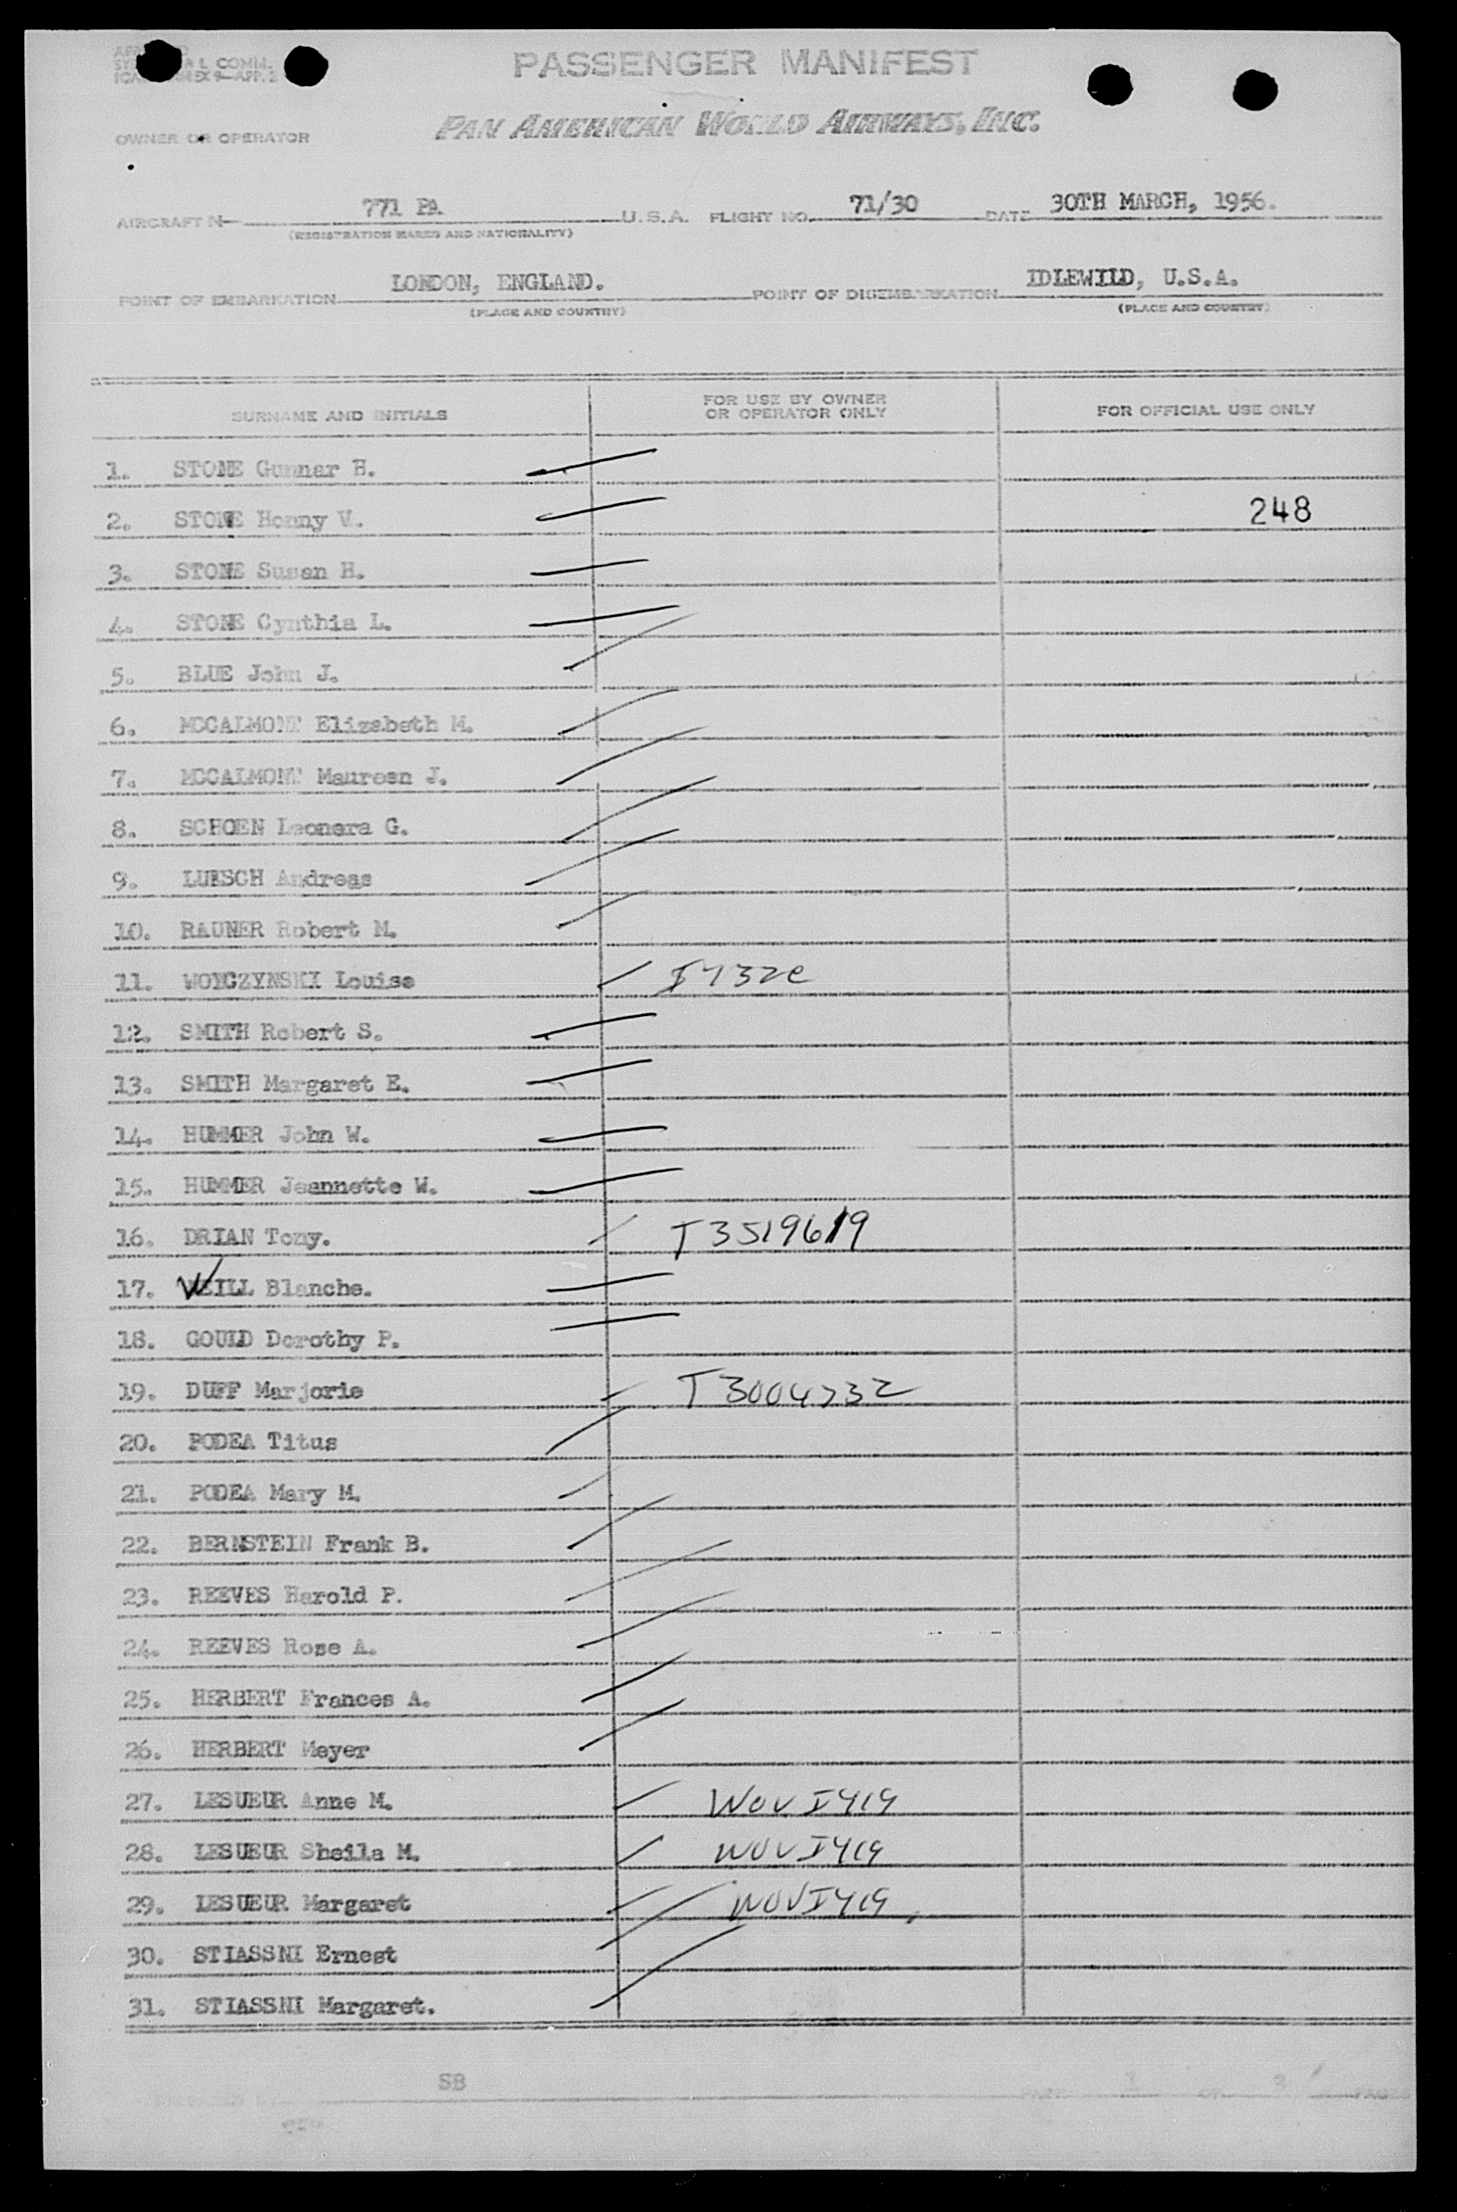 PASSENGER MANIFEST
L COMM.
PAN AMERICAN WORLD AIRWAYS, INC.
OWNER OR OPERATOR
AIRCRAFT N 771 PA U.S.A. FLIGHT NO. 71/30 DATE 30TH MARCH, 1956.
(REGISTRATION MARKS AND NATIONALITY)
POINT OF EMBARKATION LONDON, ENGLAND. POINT OF DISEMBARKATION IDLEWILD, U.S.A.
(PLACE AND COUNTRY) (PLACE AND COUNTRY)
SURNAME AND INITIALS FOR USE BY OWNER OR OPERATOR ONLY FOR OFFICIAL USE ONLY
1. STONE Gunnar H.
2. STONE Honny V. 248
3. STONE Susan H.
4. STONE Cynthia L.
5. BLUE John J.
6. MCCALMONT Elizabeth M.
7. MCCALMONT Maureen J.
8. SCHOEN Leonora G.
9. LUESCH Andreas
10. RAUNER Robert M.
11. WOYCZYNSKI Louise
12. SMITH Robert S.
13. SMITH Margaret E.
14. HUMMER John W.
15. HUMMER Jeannette W.
16. DRIAN Tony. T3519619
17. WEILL Blanche.
18. GOULD Dorothy P.
19. DUFF Marjorie T3004732
20. PODEA Titus
21. PODEA Mary M.
22. BERNSTEIN Frank B.
23. REEVES Harold P.
24. REEVES Rose A.
25. HERBERT Frances A.
26. HERBERT Meyer
27. LESUEUR Anne M. WOV I419
28. LESUEUR Sheila M. WOV I419
29. LESUEUR Margaret WOV I419
30. STIASSNI Ernest
31. STIASSNI Margaret.
SB PAGE 1 OF 3 PAGES